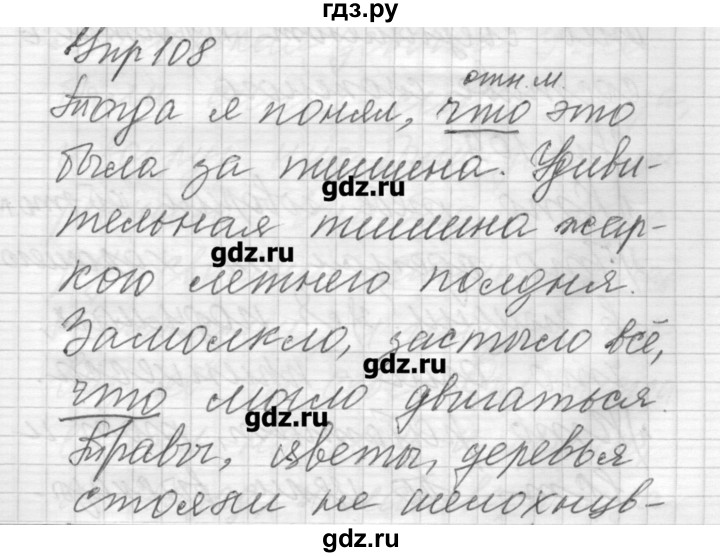 гдз.ру
Упр 108
отн. м.
Тогда я понял, что это
была за тишина. Удиви-
gdz.ru
тельная тишина жар-
gdz.ru
кого летнего полдня.
Замолкло, застыло всё,
gdz.ru
что могло двигаться.
gdz.ru
Травы, цветы, деревья
стояли не шелохнув-
gdz.ru